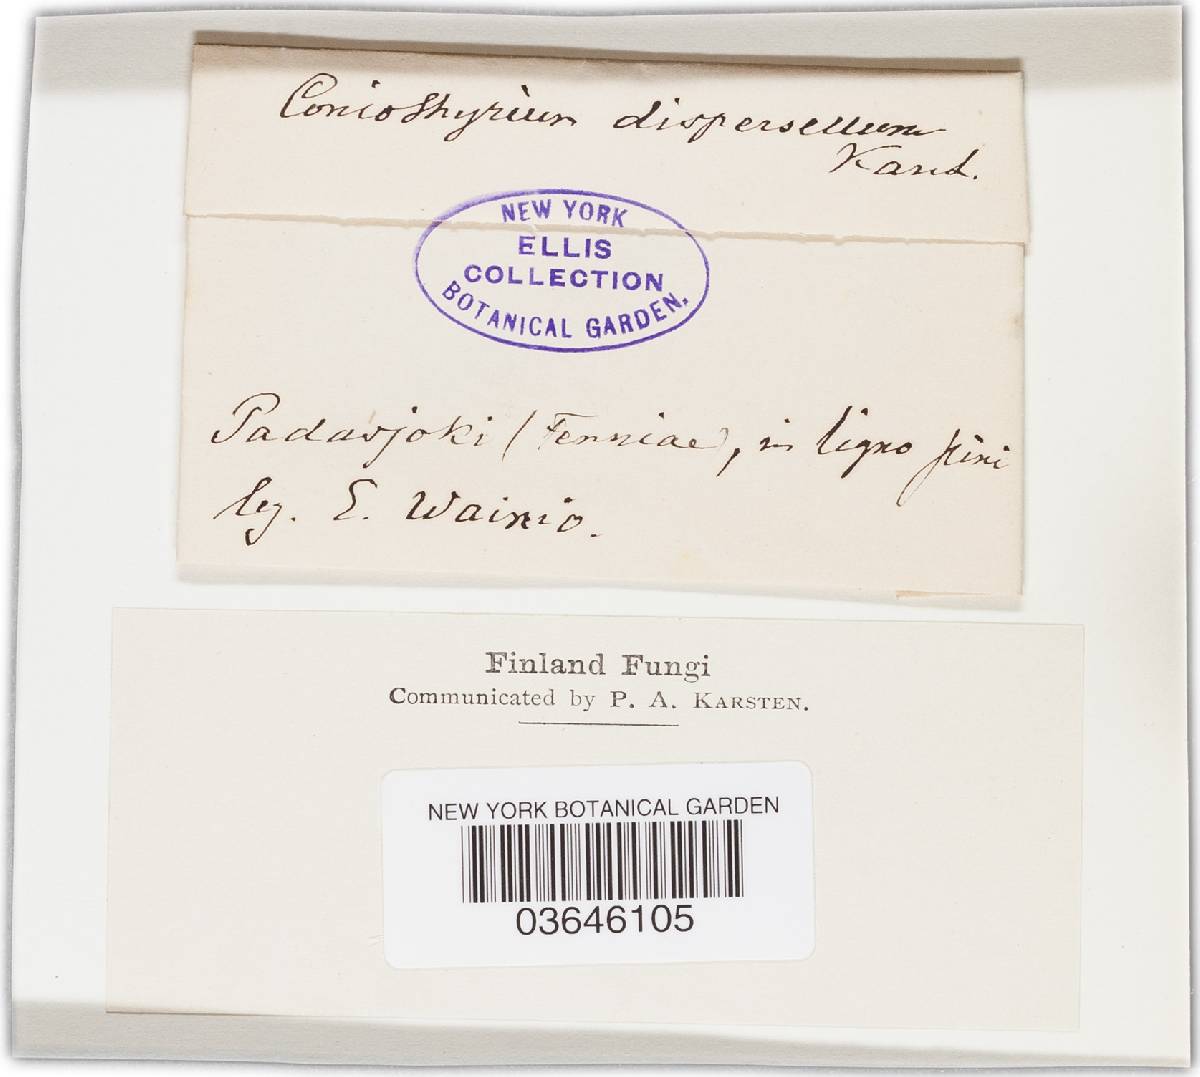 Coniothyrium dispersellum
Karst.
NEW YORK
ELLIS
COLLECTION
BOTANICAL GARDEN.
Padasjoki (Fenniae), in ligno pini
leg. E. Wainio.
Finland Fungi
Communicated by P. A. KARSTEN.
NEW YORK BOTANICAL GARDEN
03646105